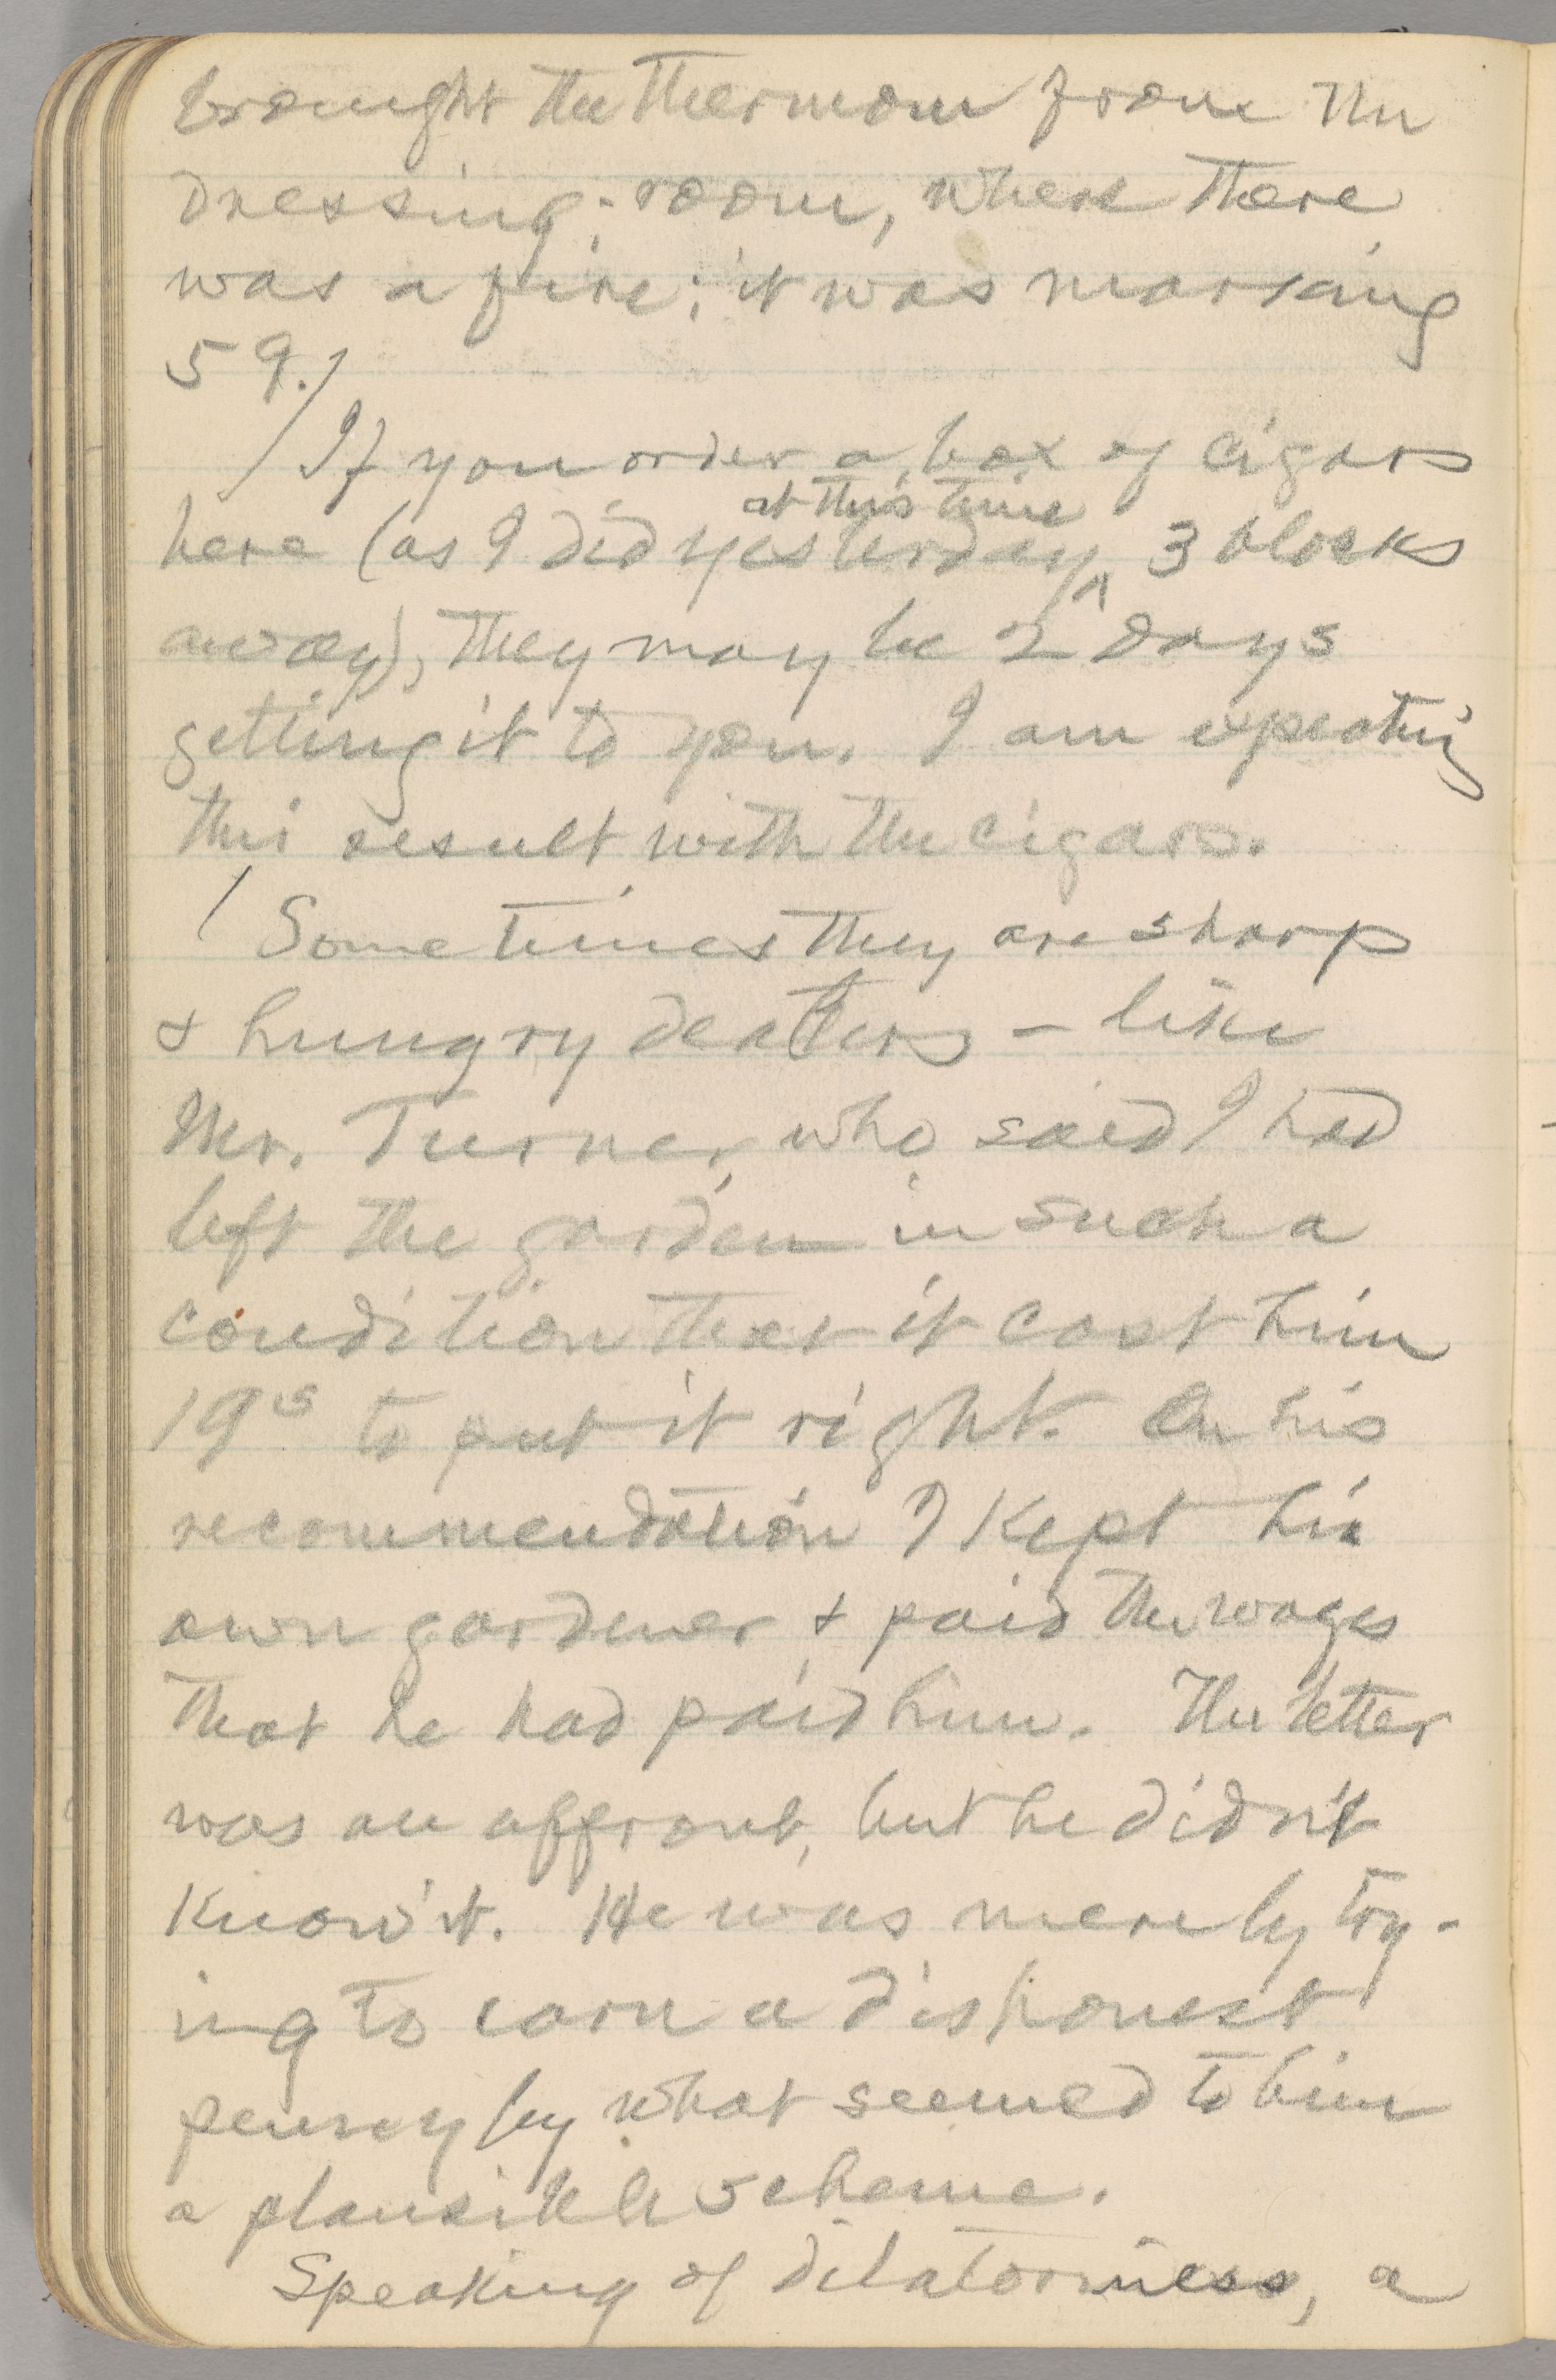 brought the thermom from the
dressing-room, where there
was a fire; it was marking
59./
/ If you order a box of cigars
here (as I did yesterday ^at this time 3 blocks
away), they may be 2 days
getting it to you. I am expecting
this result with the cigars.
/ Sometimes they are sharp
& hungry dealers – like
Mr. Turner, who said I had
left the garden in such a
condition that it cost him
19s to put it right. On his
recommendation I kept his
own gardener, & paid the wages
that he had paid him. The letter
was an affront, but he didn't
know it. He was merely try-
ing to earn a dishonest
penny by what seemed to him
a plausible scheme.
Speaking of dilatoriness, a